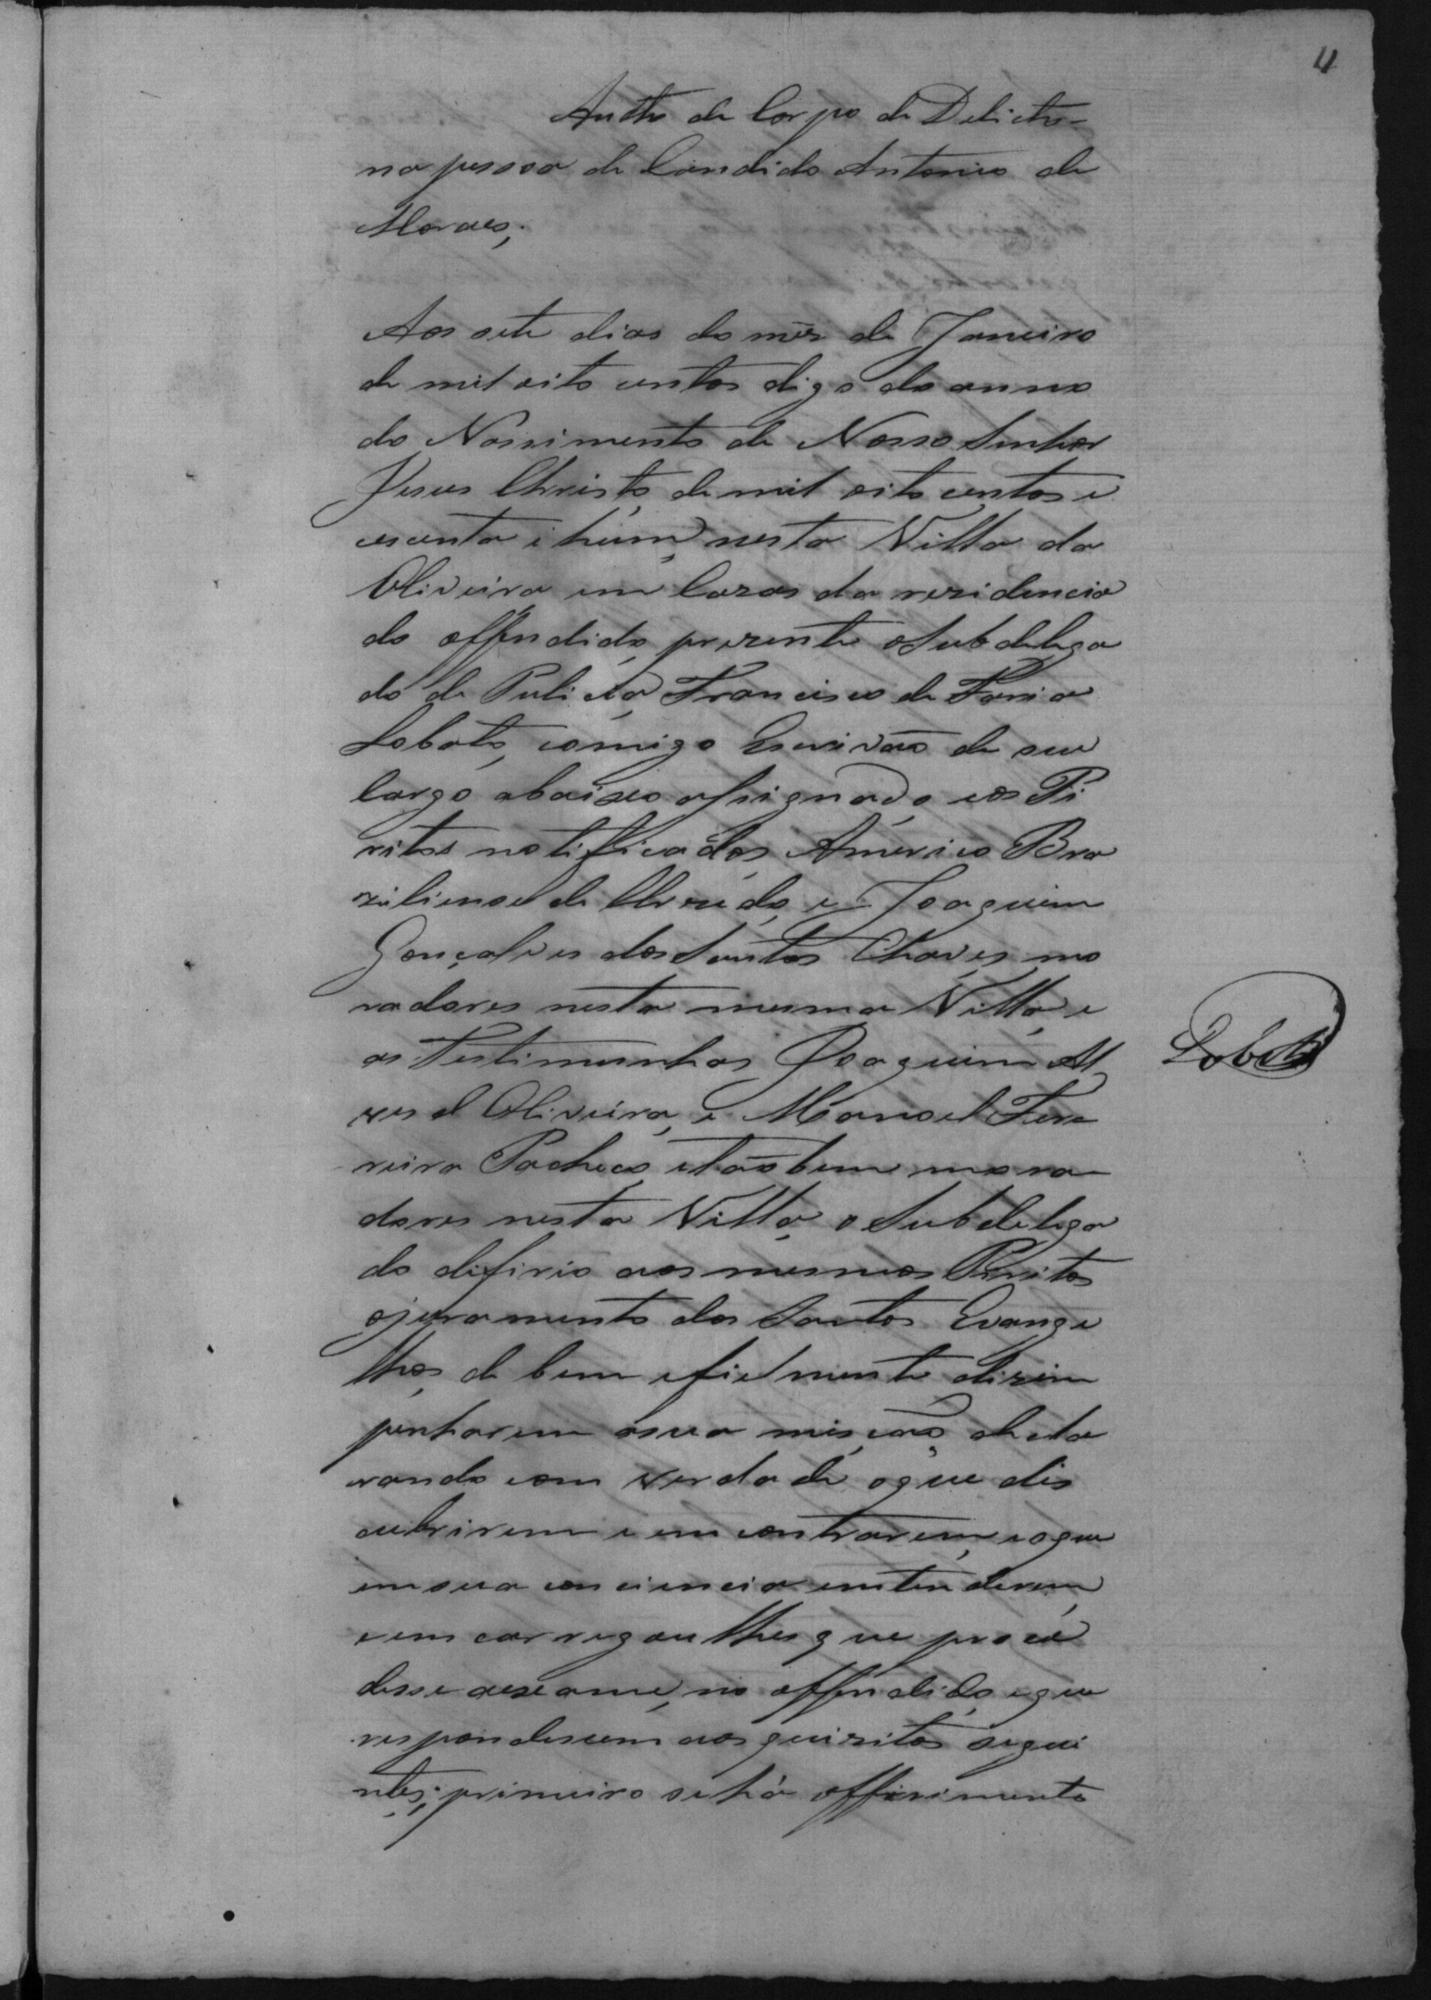 4
Autto de Corpo de Delicto
na pessoa de Candido Antonio de
Moraes;
Aos sete dias do mes de Janeiro
de mil oito centos digo do anno
do Nassimento de Nosso Senhor
Jesus Christo de mil oito centos e
cecenta e hum, nesta Villa da
Oliveira em Cazas da rezidencia
do offendido, prezente o Subdelega
do de Pulicia Francisco de Faria
Lobato, comigo Escrivão de seu
Cargo abaixo assignado, e os Pi
ritos notificados Americo Bra
ziliense de e Joaquim
Gonçalves dos Santos Chaves, mo
radores nesta mesma Villa, e
as Testimunhas Joaquim Al
ves d Oliveira, e Manoel Fer
reira Pacheco, e tãobem mora
dores nesta Villa, o Subdelega
do difirio aos mesmos Piritos
o juramento dos Santos Evange
lhos, de bem e fielmente dizem
penharem a sua misção, decla
rando com verdade o que dis
cubrirem e emcontrarem, e o que
em sua conciencia emtenderem,
e emcarregou lhes que procé
desse a exame, no offendido, e que
respondescem aos quizitos segui
ntes; primeiro se há offirimento
Lobato